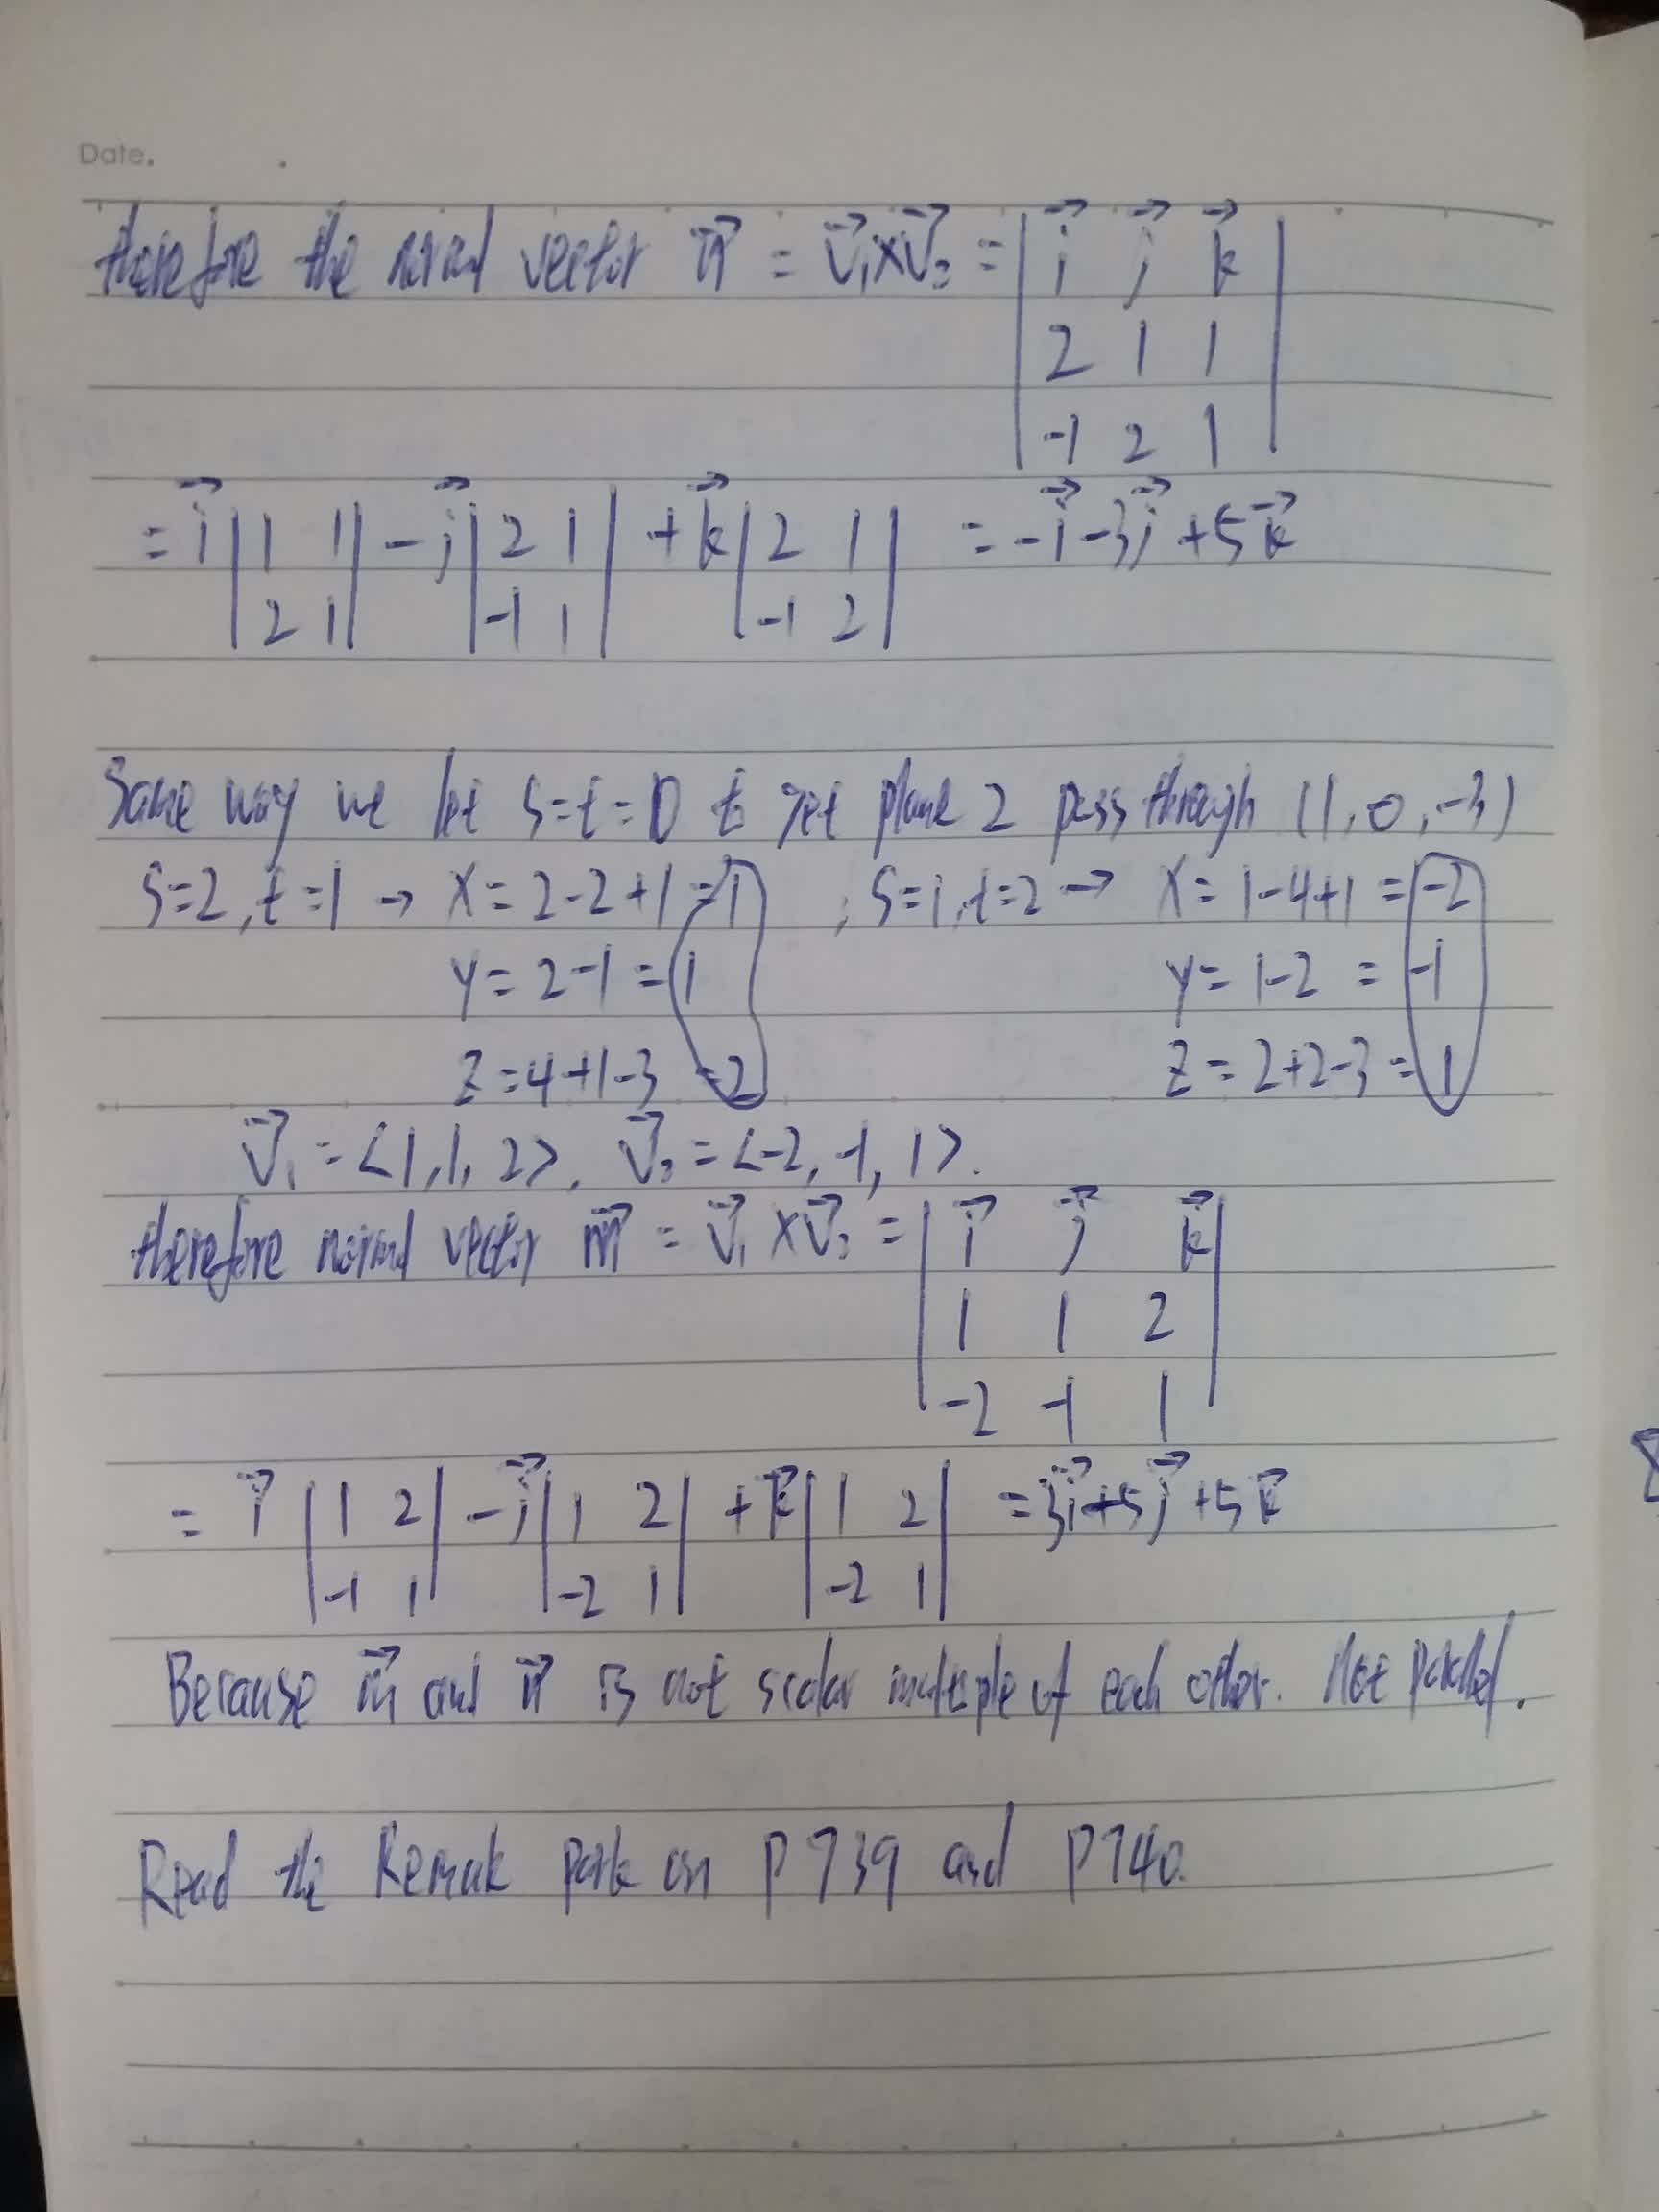 Date.
therefore the normal vector n⃗ = v⃗₁×v⃗₂ = | i⃗ j⃗ k⃗ |
| 2 1 1 |
| -1 2 1 |
= i⃗ | 1 1 | - j⃗ | 2 1 | + k⃗ | 2 1 | = -i⃗ -3j⃗ +5k⃗
| 2 1 | | -1 1 | | -1 2 |
Same way we let s=t=0 to get plane 2 pass through (1, 0, -3)
s=2, t=1 → x = 2-2+1 = 1 ; s=1, t=2 → x = 1-4+1 = -2
y = 2-1 = 1 y = 1-2 = -1
z = 4+1-3 = 2 z = 2+2-3 = 1
v⃗₁ = <1, 1, 2>, v⃗₂ = <-2, -1, 1>.
therefore normal vector m⃗ = v⃗₁ × v⃗₂ = | i⃗ j⃗ k⃗ |
| 1 1 2 |
| -2 -1 1 |
= i⃗ | 1 2 | - j⃗ | 1 2 | + k⃗ | 1 2 | = 3i⃗ +5j⃗ +5k⃗
| -1 1 | | -2 1 | | -2 1 |
Because m⃗ and n⃗ is not scalar multiple of each other. Not parallel.
Read the Remark part on P739 and P740.